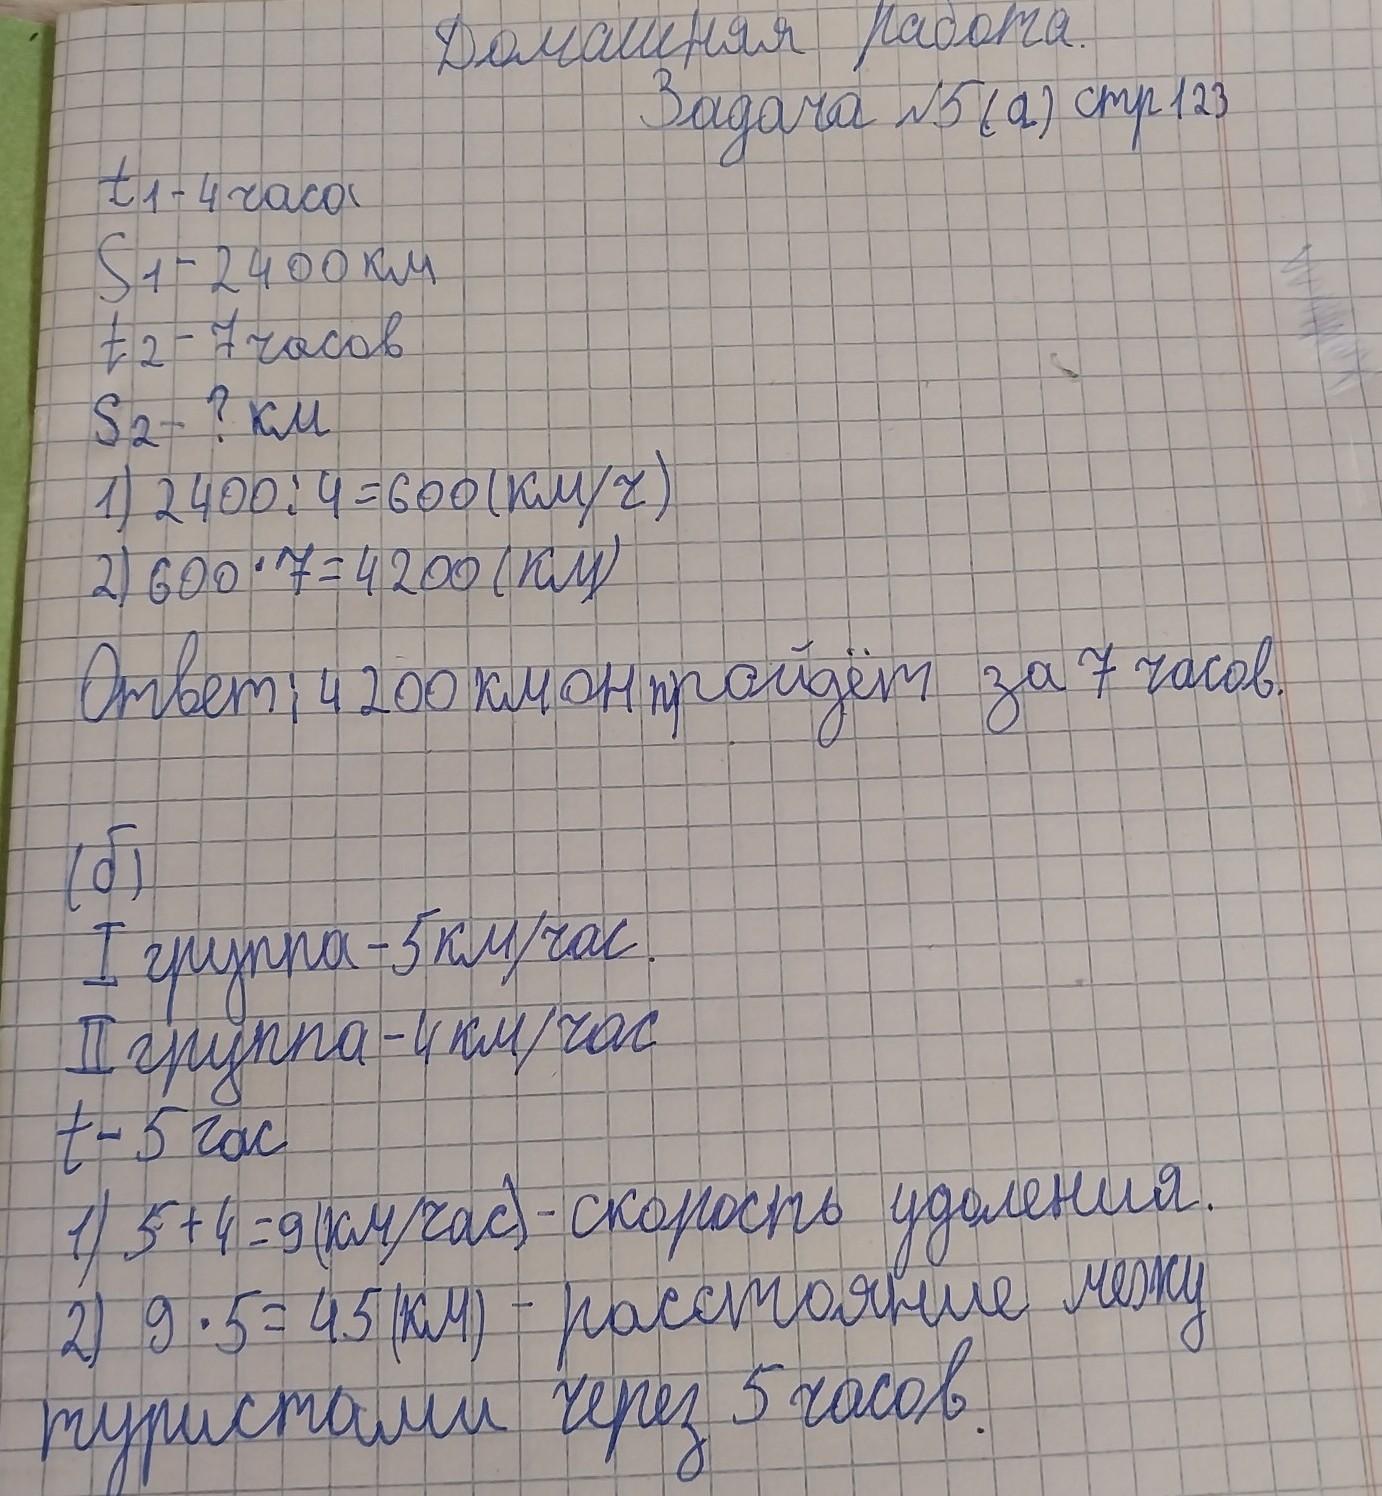 Домашняя работа.
Задача №5(а) стр 123
t1 - 4 часа
S1 - 2400 км
t2 - 7 часов
S2 - ? км
1) 2400 : 4 = 600 (км/ч)
2) 600 · 7 = 4200 (км)
Ответ: 4200 км он пройдёт за 7 часов.
(б)
I группа - 5 км/час.
II группа - 4 км/час
t - 5 час
1) 5 + 4 = 9 (км/час) - скорость удоления.
2) 9 · 5 = 45 (км) - расстояние межу
туристами через 5 часов.